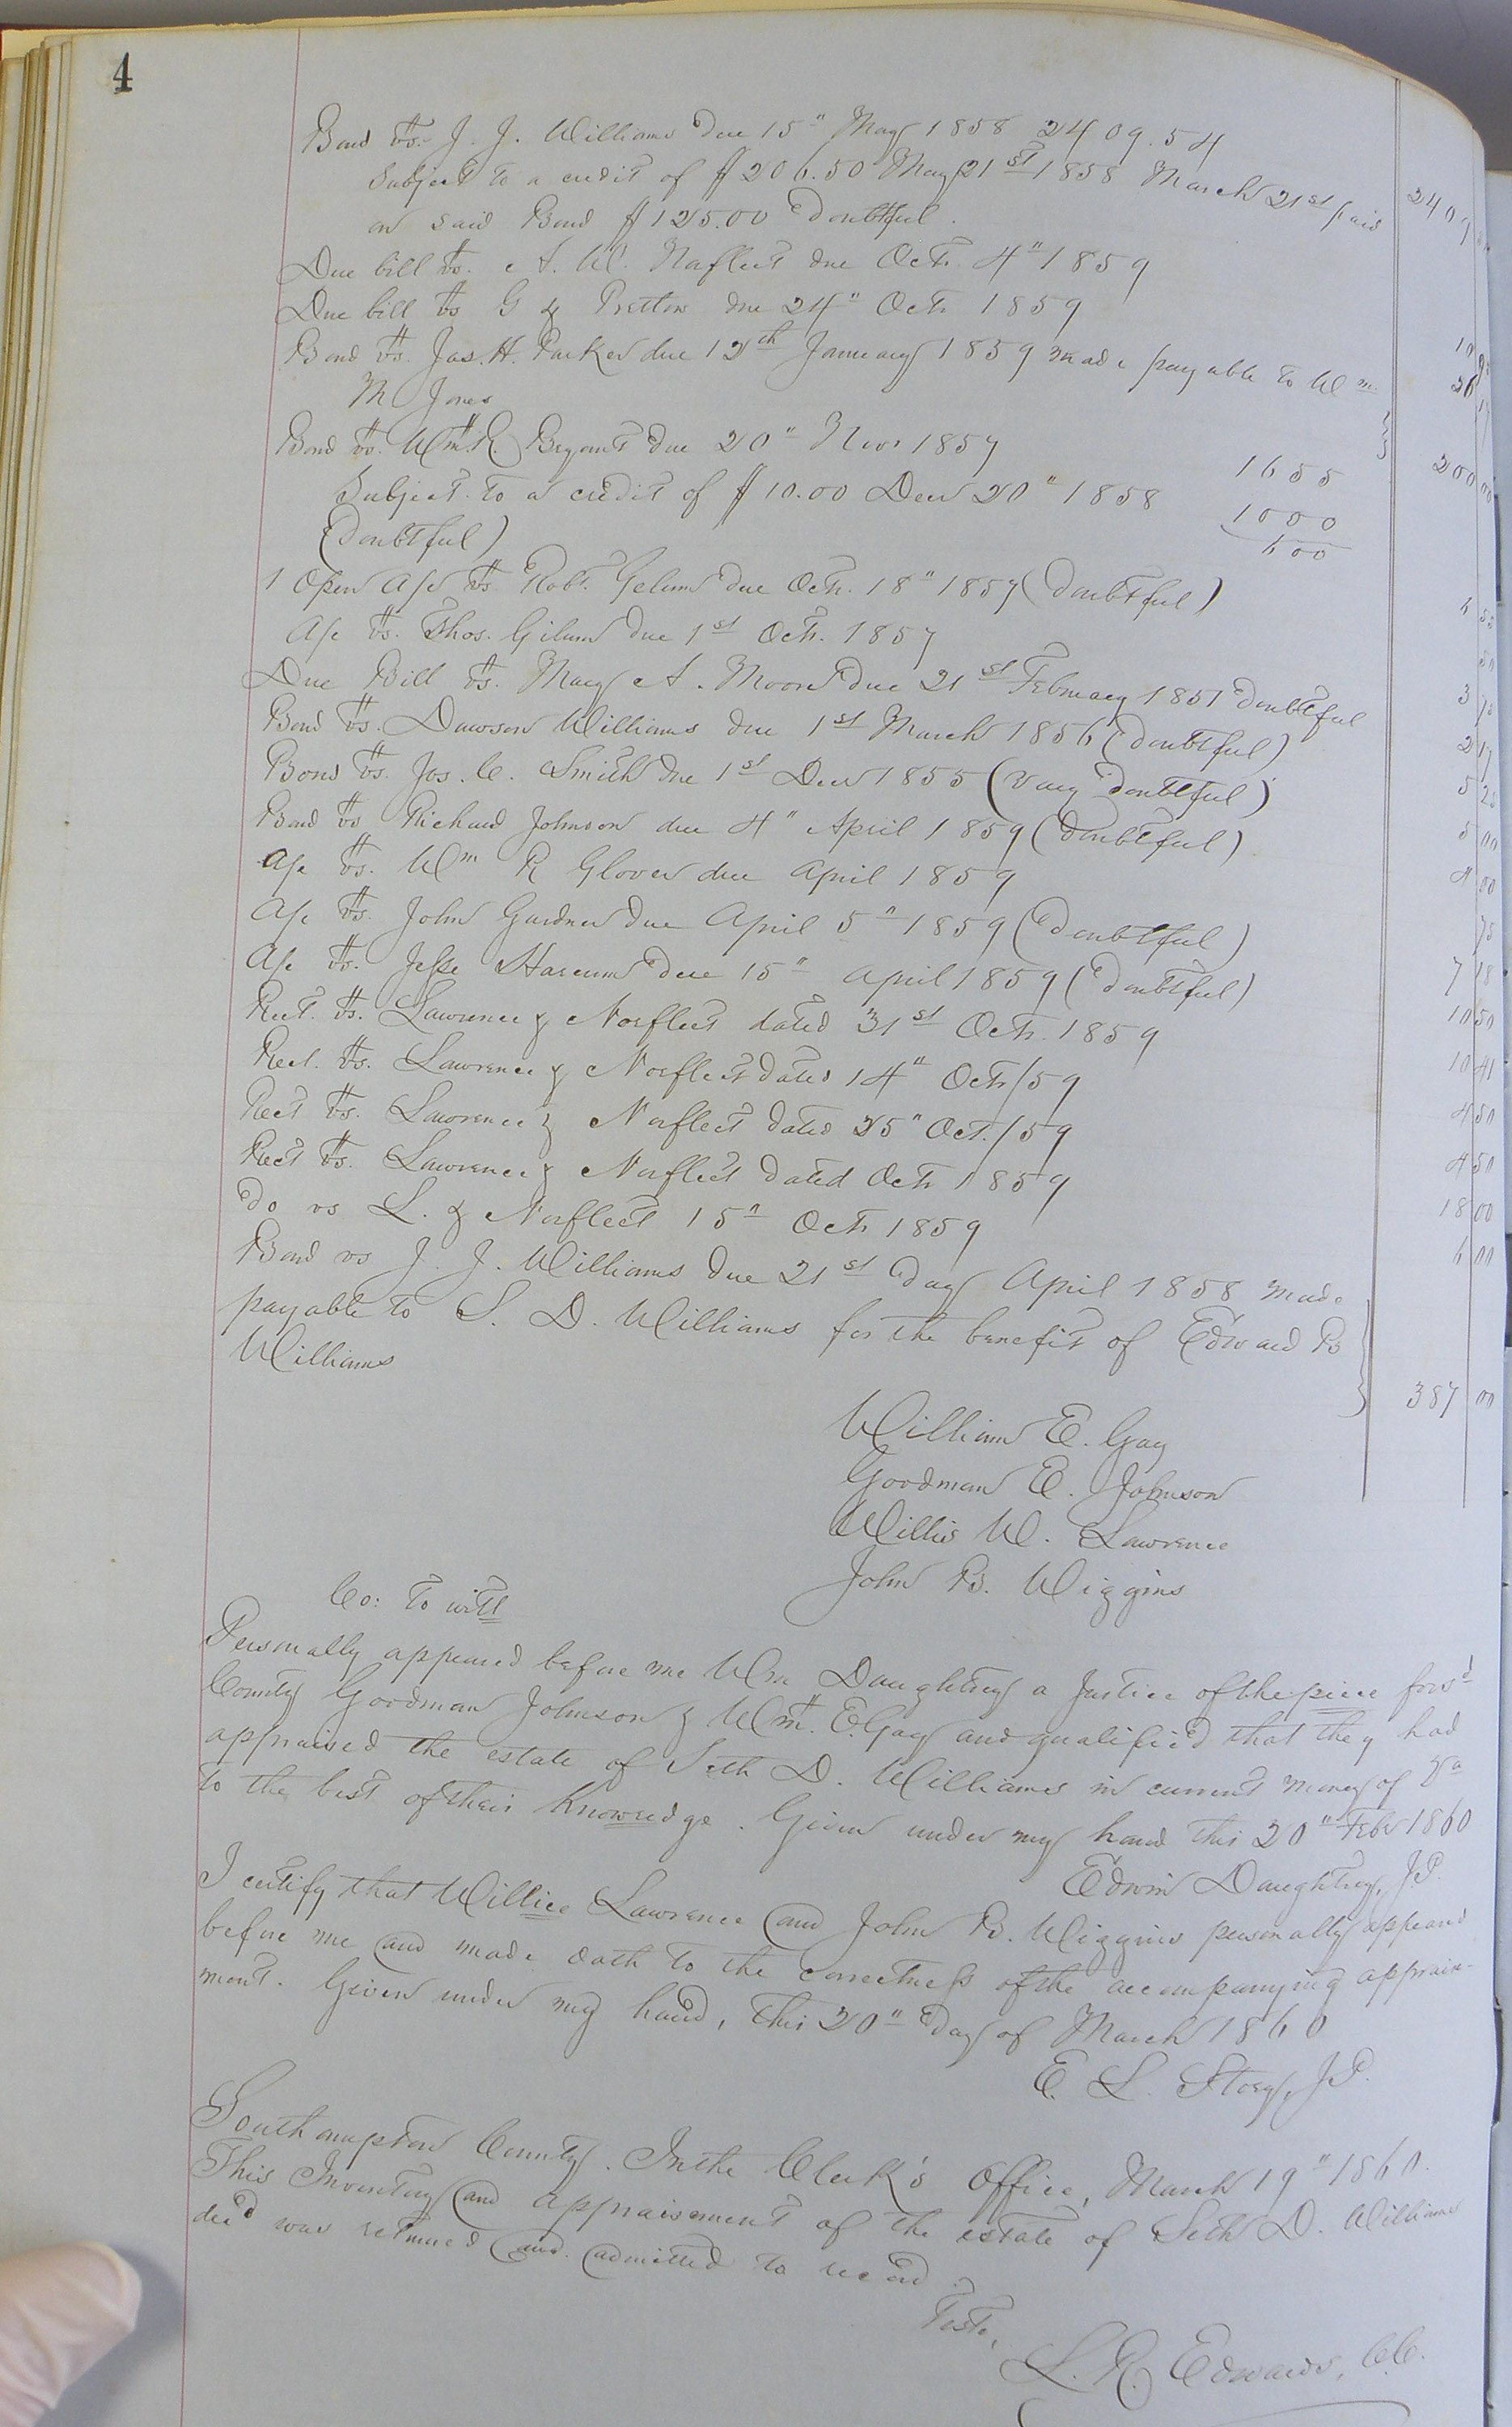 4
Bond vs. J. J. Williams due 15" May 1858 2409.54
Subject to a credit of $206.50 May 21st 1858 March 21st paid 2409
on said Bond $125.00 Doubtful.
Due bill vs. A. W. Norfleet due Octr. 4" 1859
Due bill vs G & Pretlow due 24" Octr 1859 10
Bond vs. Jas. H. Parker due 12th January 1859 made payable to Wm 26
M Jones 200 00
Bond vs. Wm. R. Bryant due 20" Novr 1857 1655
Subject to a credit of $10.00 Decr 20" 1858 1000
(Doubtful) 600
1 Open A/c vs. Robt. Gelum due Octr. 18" 1857 (Doubtful) 6 50
A/c vs. Thos. Gilum due 1st Octr. 1857 50
Due Bill vs. Mary A. Moore due 21st February 1851 Doubtful 3
Bond vs. Dawson Williams due 1st March 1856 (Doubtful) 2 17
Bond vs. Jos. C. Smith due 1st Decr 1855 (Very Doubtful) 5 20
Bond vs Richard Johnson due 4" April 1859 (Doubtful) 5 00
A/c vs. Wm R Glover due April 1859 4 00
A/c vs. John Gardner due April 5" 1859 (Doubtful) 75
A/c vs. Jesse Harcum due 15" April 1859 (Doubtful) 7 18
Rect. vs. Lawrence & Norfleet dated 31st Octr. 1859 10 50
Rect. vs. Lawrence & Norfleet dated 14" Octr/59 10 41
Rect vs. Lawrence & Norfleet dated 25" Oct./59 4 50
Rect vs. Lawrence & Norfleet dated Octr 1859 4 50
Do vs L. & Norfleet 15" Octr 1859 18 00
Bond vs J. J. Williams due 21st day April 1858 made 6 00
payable to S. D. Williams for the benefit of Edward B
Williams 387 00
William E. Gay
Goodman E. Johnson
Willis W. Lawrence
John B. Wiggins
Co: To witt
Personally appeared before me Wm Daughtrey a Justice of the piece for sd
County Goodman Johnson & Wm. E. Gay and qualified that they had
appraised the estate of Seth D. Williams in current money of Va
to the best of their Knowredge. Given under my hand this 20" Feby 1860
Edwin Daughtrey, J.P.
I certify that Willice Lawrence and John B. Wiggins personally appeared
before me and made oath to the correctness of the accompanying appraise-
ment. Given under my hand, this 20" day of March 1860
E. L. Story, J.P.
Southampton County. In the Clerk's Office, March 19" 1860.
This Inventory and appraisement of the estate of Seth D. Williams
decd was returned and admitted to record.
Teste,
L. R. Edwards, C.C.